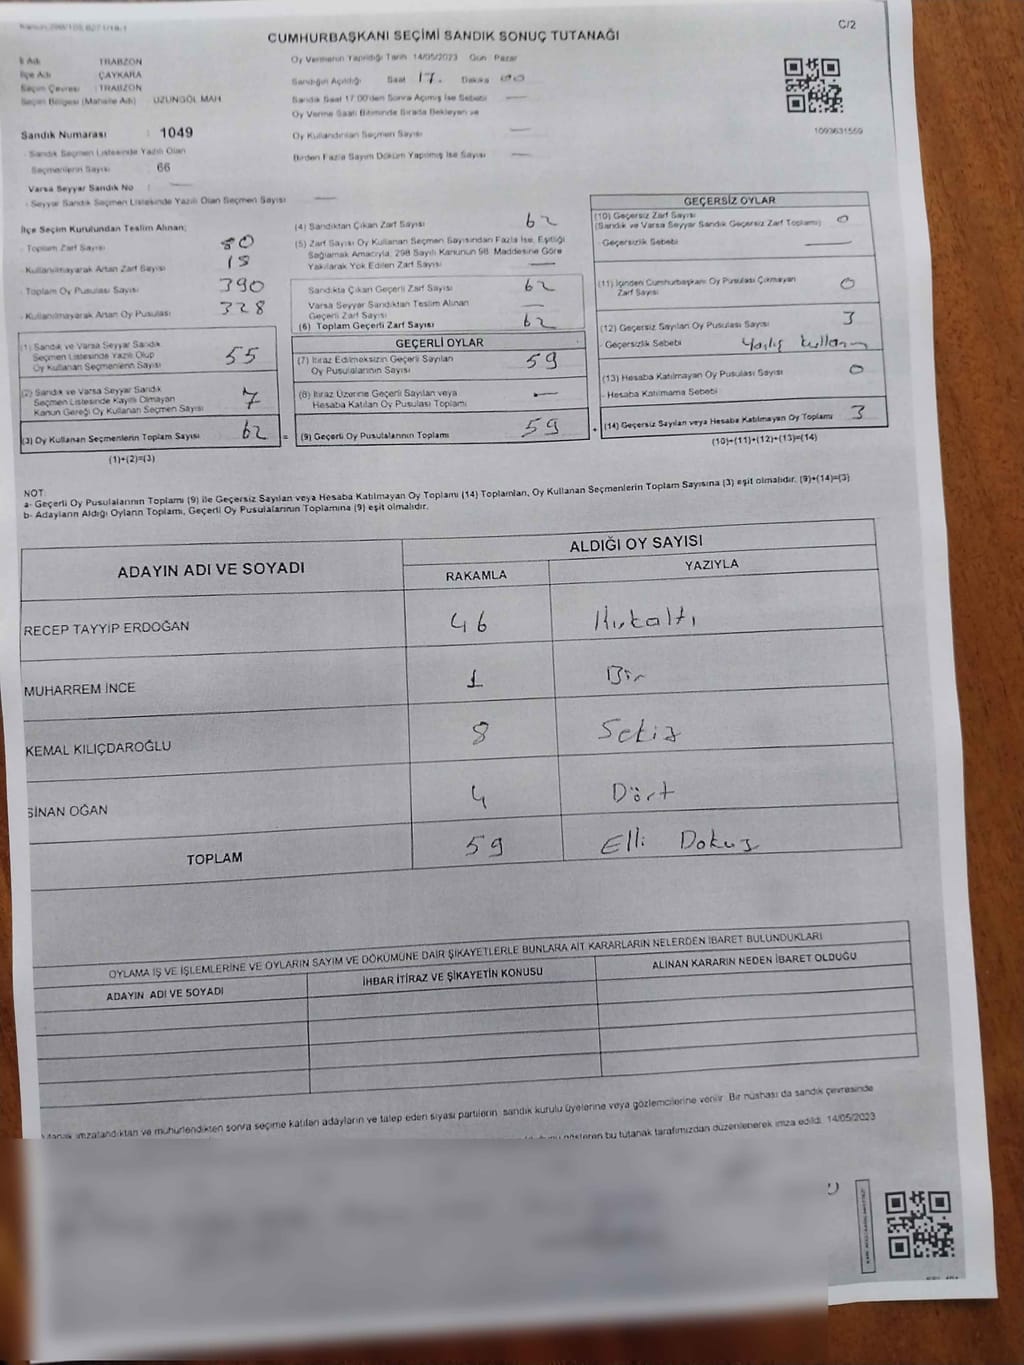 C/2
CUMHURBAŞKANI SEÇİMİ SANDIK SONUÇ TUTANAĞI
İl Adı : TRABZON
İlçe Adı : ÇAYKARA
Seçim Çevresi : TRABZON
Seçim Bölgesi (Mahalle Adı) : UZUNGÖL MAH
Sandık Numarası : 1049
- Sandık Seçmen Listesinde Yazılı Olan
Seçmenlerin Sayısı : 66
Varsa Seyyar Sandık No : —
- Seyyar Sandık Seçmen Listesinde Yazılı Olan Seçmen Sayısı —
Oy Vermenin Yapıldığı Tarih 14/05/2023 Gün Pazar
Sandığın Açıldığı Saat 17. Dakika 00
Sandık Saat 17:00'den Sonra Açılmış İse Sebebi —
Oy Verme Saati Bitiminde Sırada Bekleyen ve
Oy Kullandırılan Seçmen Sayısı —
Birden Fazla Sayım Döküm Yapılmış İse Sayısı —
1093631559
İlçe Seçim Kurulundan Teslim Alınan;
- Toplam Zarf Sayısı 80
- Kullanılmayarak Artan Zarf Sayısı 18
- Toplam Oy Pusulası Sayısı 390
- Kullanılmayarak Artan Oy Pusulası 328
(1) Sandık ve Varsa Seyyar Sandık
Seçmen Listesinde Yazılı Olup
Oy Kullanan Seçmenlerin Sayısı 55
(2) Sandık ve Varsa Seyyar Sandık
Seçmen Listesinde Kayıtlı Olmayan
Kanun Gereği Oy Kullanan Seçmen Sayısı 7
(3) Oy Kullanan Seçmenlerin Toplam Sayısı 62 =
(1)+(2)=(3)
(4) Sandıktan Çıkan Zarf Sayısı 62
(5) Zarf Sayısı Oy Kullanan Seçmen Sayısından Fazla İse, Eşitliği
Sağlamak Amacıyla, 298 Sayılı Kanunun 98. Maddesine Göre
Yakılarak Yok Edilen Zarf Sayısı —
Sandıkta Çıkan Geçerli Zarf Sayısı 62
Varsa Seyyar Sandıktan Teslim Alınan
Geçerli Zarf Sayısı —
(6) Toplam Geçerli Zarf Sayısı 62
GEÇERLİ OYLAR
(7) İtiraz Edilmeksizin Geçerli Sayılan
Oy Pusulalarının Sayısı 59
(8) İtiraz Üzerine Geçerli Sayılan veya
Hesaba Katılan Oy Pusulası Toplamı —
(9) Geçerli Oy Pusulalarının Toplamı 59 +
GEÇERSİZ OYLAR
(10) Geçersiz Zarf Sayısı
(Sandık ve Varsa Seyyar Sandık Geçersiz Zarf Toplamı) 0
- Geçersizlik Sebebi —
(11) İçinden Cumhurbaşkanı Oy Pusulası Çıkmayan
Zarf Sayısı 0
(12) Geçersiz Sayılan Oy Pusulası Sayısı 3
- Geçersizlik Sebebi Yanlış kullanım
(13) Hesaba Katılmayan Oy Pusulası Sayısı 0
- Hesaba Katılmama Sebebi
(14) Geçersiz Sayılan veya Hesaba Katılmayan Oy Toplamı 3
(10)+(11)+(12)+(13)=(14)
NOT:
a- Geçerli Oy Pusulalarının Toplamı (9) ile Geçersiz Sayılan veya Hesaba Katılmayan Oy Toplamı (14) Toplamları, Oy Kullanan Seçmenlerin Toplam Sayısına (3) eşit olmalıdır. (9)+(14)=(3)
b- Adayların Aldığı Oyların Toplamı, Geçerli Oy Pusulalarının Toplamına (9) eşit olmalıdır.
ADAYIN ADI VE SOYADI ALDIĞI OY SAYISI
RAKAMLA YAZIYLA
RECEP TAYYİP ERDOĞAN 46 Kırkaltı
MUHARREM İNCE 1 Bir
KEMAL KILIÇDAROĞLU 8 Sekiz
SİNAN OĞAN 4 Dört
TOPLAM 59 Elli Dokuz
OYLAMA İŞ VE İŞLEMLERİNE VE OYLARIN SAYIM VE DÖKÜMÜNE DAİR ŞİKAYETLERLE BUNLARA AİT KARARLARIN NELERDEN İBARET BULUNDUKLARI
ADAYIN ADI VE SOYADI İHBAR İTİRAZ VE ŞİKAYETİN KONUSU ALINAN KARARIN NEDEN İBARET OLDUĞU
tutanak imzalandıktan ve mühürlendikten sonra seçime katılan adayların ve talep eden siyasi partilerin sandık kurulu üyelerine veya gözlemcilerine verilir. Bir nüshası da sandık çevresinde
gösteren bu tutanak tarafımızdan düzenlenerek imza edildi. 14/05/2023